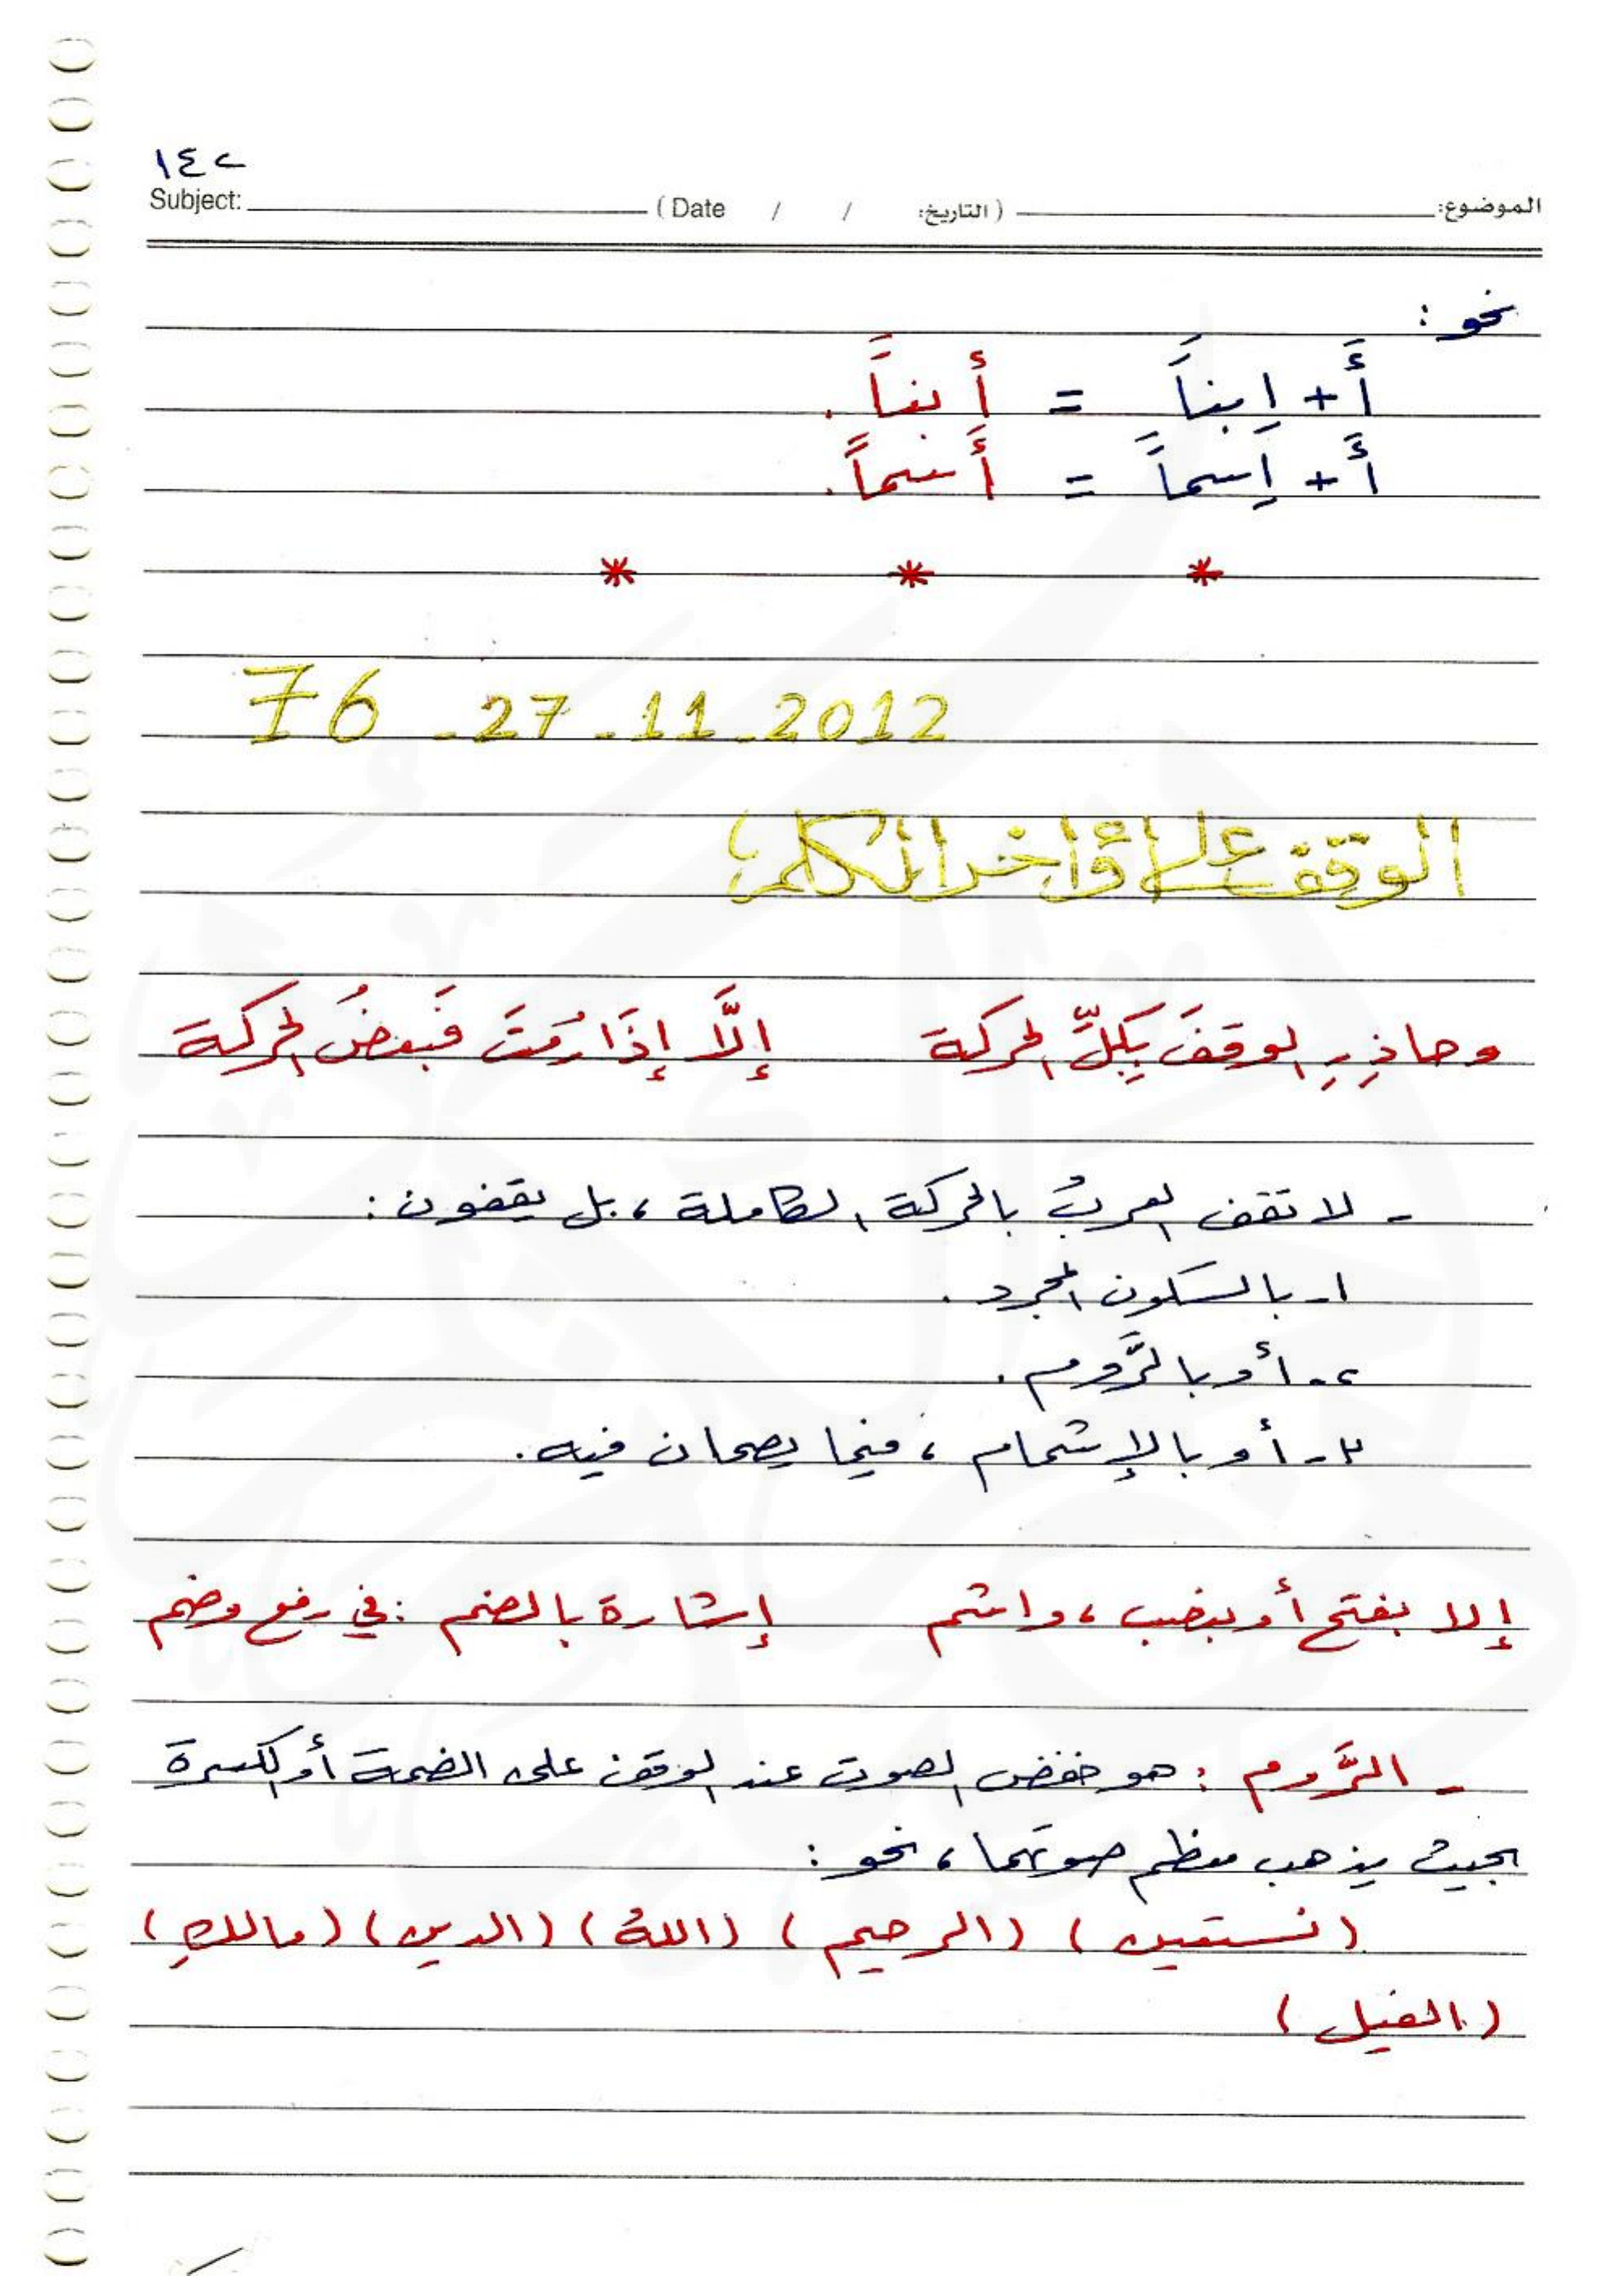 ١٤٢
Subject: (Date / / التاريخ:) الموضوع:
نحو :
أَ + اِبناً = أَبناً .
أَ + اِسماً = أَسماً .
* * *
76 - 27 - 11 - 2012
الوقف على أواخر الكلم
وحاذِرِ الوقفَ بِكلِّ الحركة إلَّا إِذَا رُمتَ فَبعضُ الحركة
- لا تقف العربُ بالحركة الكاملة ، بل يقفون :
١- بالسكون المجرد .
٢- أو بالرَّوم .
٣- أو بالإشمام ، فيما يصحان فيه .
إلا بفتح أو بنصب ، واشم إشارة بالضم : في رفع وضم
- الرَّوم : هو خفض الصوت عند الوقف على الضمة أو الكسرة
بحيث يذهب معظم صوتهما ، نحو :
(نستعين) (الرحيم) (اللهُ) (الدين) (مالكِ)
(الفيل)